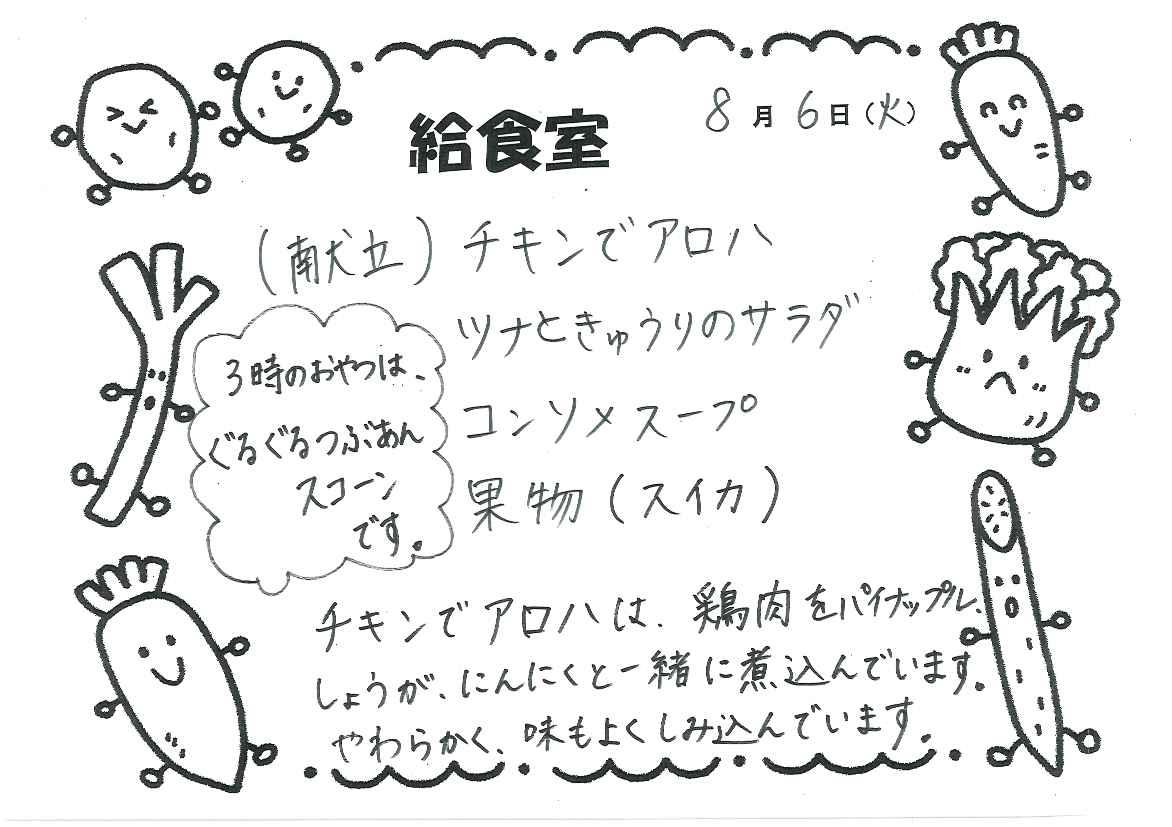 給食室
8月6日(火)
(献立)チキンでアロハ
ツナときゅうりのサラダ
コンソメスープ
果物(スイカ)
3時のおやつは、
ぐるぐるつぶあん
スコーン
です。
チキンでアロハは、鶏肉をパイナップル、
しょうが、にんにくと一緒に煮込んでいます。
やわらかく、味もよくしみ込んでいます。